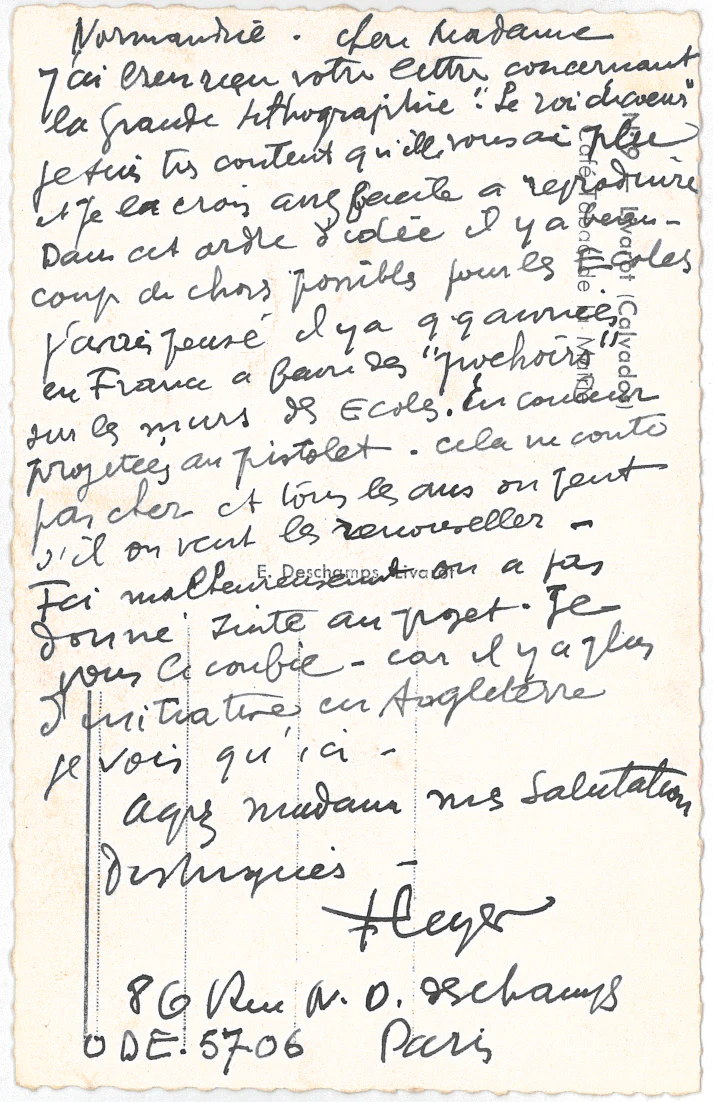 Normandie . chere Madame
J'ai bien reçu votre lettre concernant
la grande lithographie "Le roi de coeur"
je suis tres content qu'elle vous ai plu
et je la crois assez facile a reproduire
Dans cet ordre d'idée il y a beau-
coup de choses possibles pour les Ecoles
j'avais pensé il y a q q années
en France a faire des "pochoirs"
sur les murs des Ecoles. En couleur
projetées au pistolet . cela ne coute
pas cher et tous les ans on peut
s'il on veut les renouveller -
Ici malheureusement on a pas
donné suite au projet. Je
vous le confie - car il y a plus
d'initiative en Angleterre
je vois qu'ici -
Agrez madame mes Salutation
Distinguées -
FLeger
86 Rue N. D. des champs
ODE. 57-06 Paris
E. Deschamps, Livarot
Livarot (Calvados)
Café Tabac de la Mairie